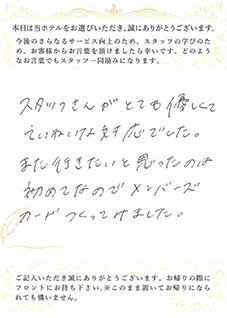 本日は当ホテルをお選びいただき、誠にありがとうございます。
今後のさらなるサービス向上のため、スタッフの学びのた
め、お客様からお言葉を頂けましたら幸いです。どのよう
なお言葉でもスタッフ一同励みになります。
スタッフさんがとても優しくて
ていねいな対応でした。
また行きたいと思ったのは
初めてなのでメンバーズ
カードつくってみました。
ご記入いただき誠にありがとうございます。お帰りの際に
フロントにお持ち下さい。※このまま置いてお帰りになら
れても構いません。